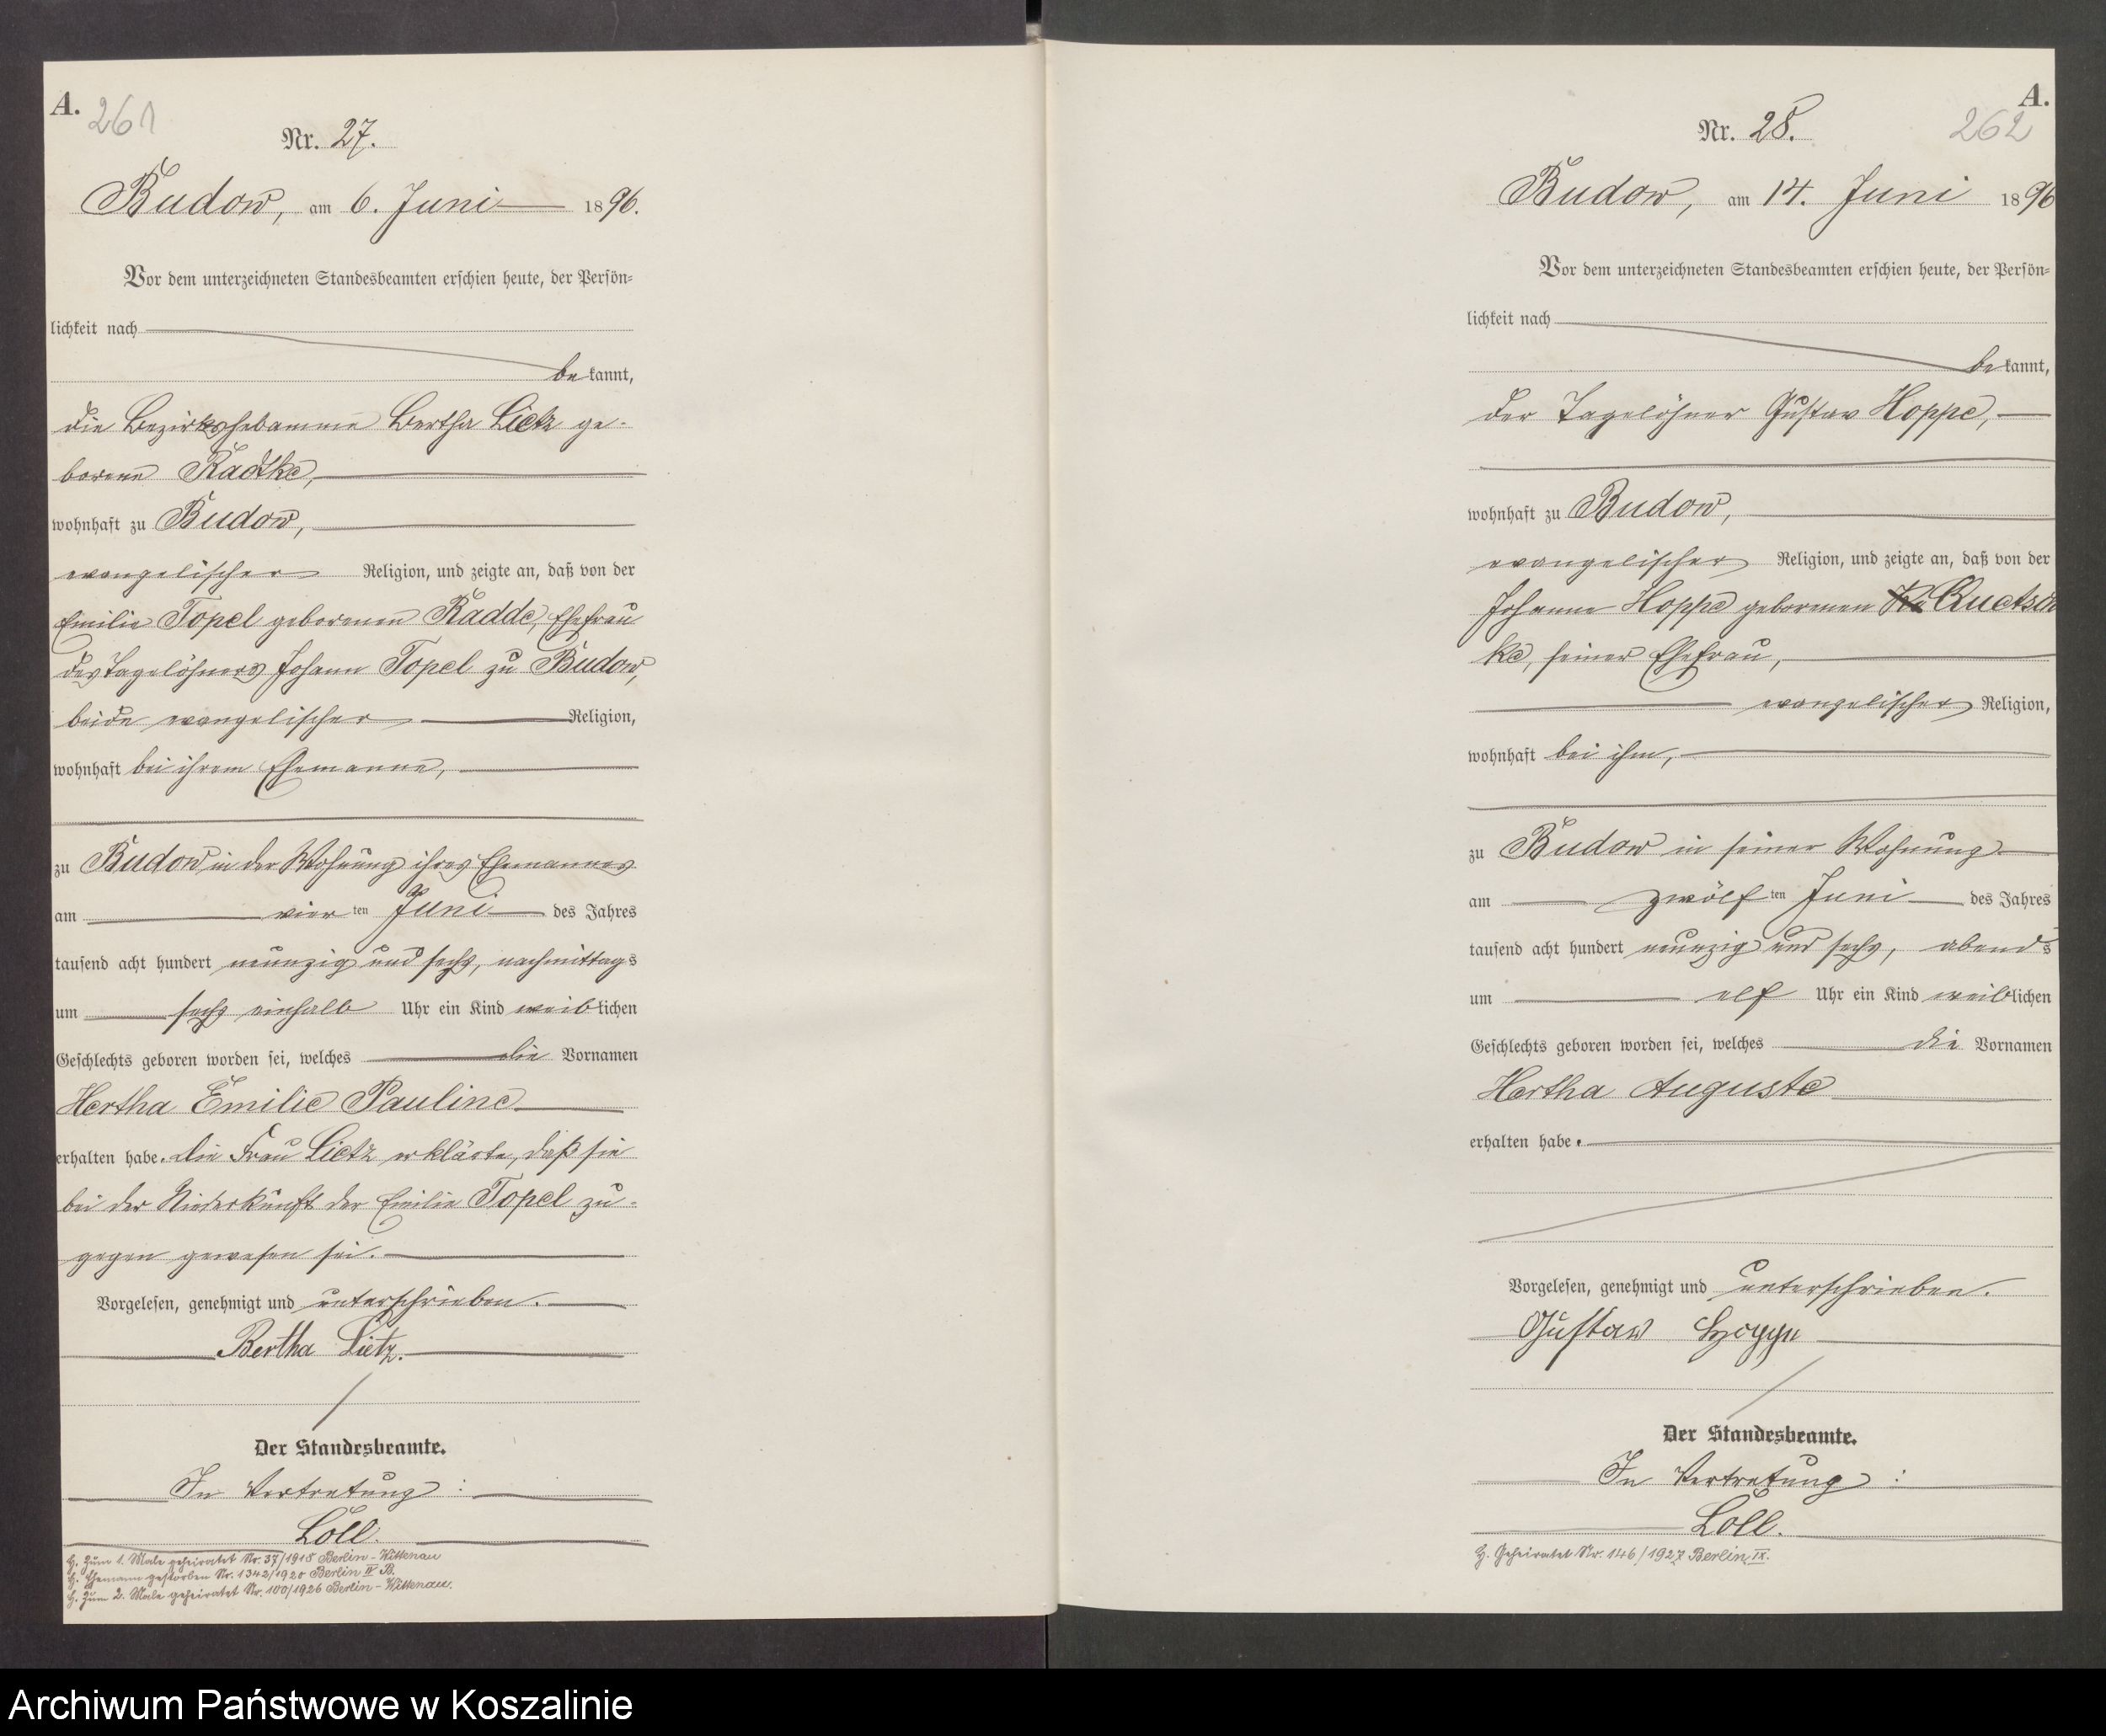 A.
261
Nr. 27.
Budow, am 6. Juni 1896.
Vor dem unterzeichneten Standesbeamten erschien heute, der Persön-
lichkeit nach
bekannt,
die Bezirkshebamme Bertha Lietz ge-
borene Radtke,
wohnhaft zu Budow,
evangelischer Religion, und zeigte an, daß von der
Emilie Topel geborenen Radde, Ehefrau
des Tagelöhners Johann Topel zu Budow,
beide evangelischer Religion,
wohnhaft bei ihrem Ehemanne,
zu Budow in der Wohnung ihres Ehemannes
am vierten Juni des Jahres
tausend acht hundert neunzig und sechs, nachmittags
um sechs einhalb Uhr ein Kind weiblichen
Geschlechts geboren worden sei, welches die Vornamen
Hertha Emilie Pauline
erhalten habe. Die Frau Lietz erklärte, daß sie
bei der Niederkunft der Emilie Topel zu-
gegen gewesen sei.
Vorgelesen, genehmigt und unterschrieben.
Bertha Lietz.
Der Standesbeamte.
In Vertretung:
Löll.
H. Zum 1. Male geheiratet Nr. 37/1918 Berlin-Wittenau
H. Ehemann gestorben Nr. 1342/1920 Berlin IV B.
H. Zum 2. Male geheiratet Nr. 100/1926 Berlin-Wittenau.
A.
262
Nr. 28.
Budow, am 14. Juni 1896
Vor dem unterzeichneten Standesbeamten erschien heute, der Persön-
lichkeit nach
bekannt,
der Tagelöhner Gustav Hoppe,
wohnhaft zu Budow,
evangelischer Religion, und zeigte an, daß von der
Johanne Hoppe geborenen Quetsch
ke, seiner Ehefrau,
evangelischer Religion,
wohnhaft bei ihm,
zu Budow in seiner Wohnung
am zwölften Juni des Jahres
tausend acht hundert neunzig und sechs, abends
um elf Uhr ein Kind weiblichen
Geschlechts geboren worden sei, welches die Vornamen
Hertha Auguste
erhalten habe.
Vorgelesen, genehmigt und unterschrieben.
Gustaw Hoppe
Der Standesbeamte.
In Vertretung:
Löll.
H. Geheiratet Nr. 146/1927 Berlin IX.
Archiwum Państwowe w Koszalinie